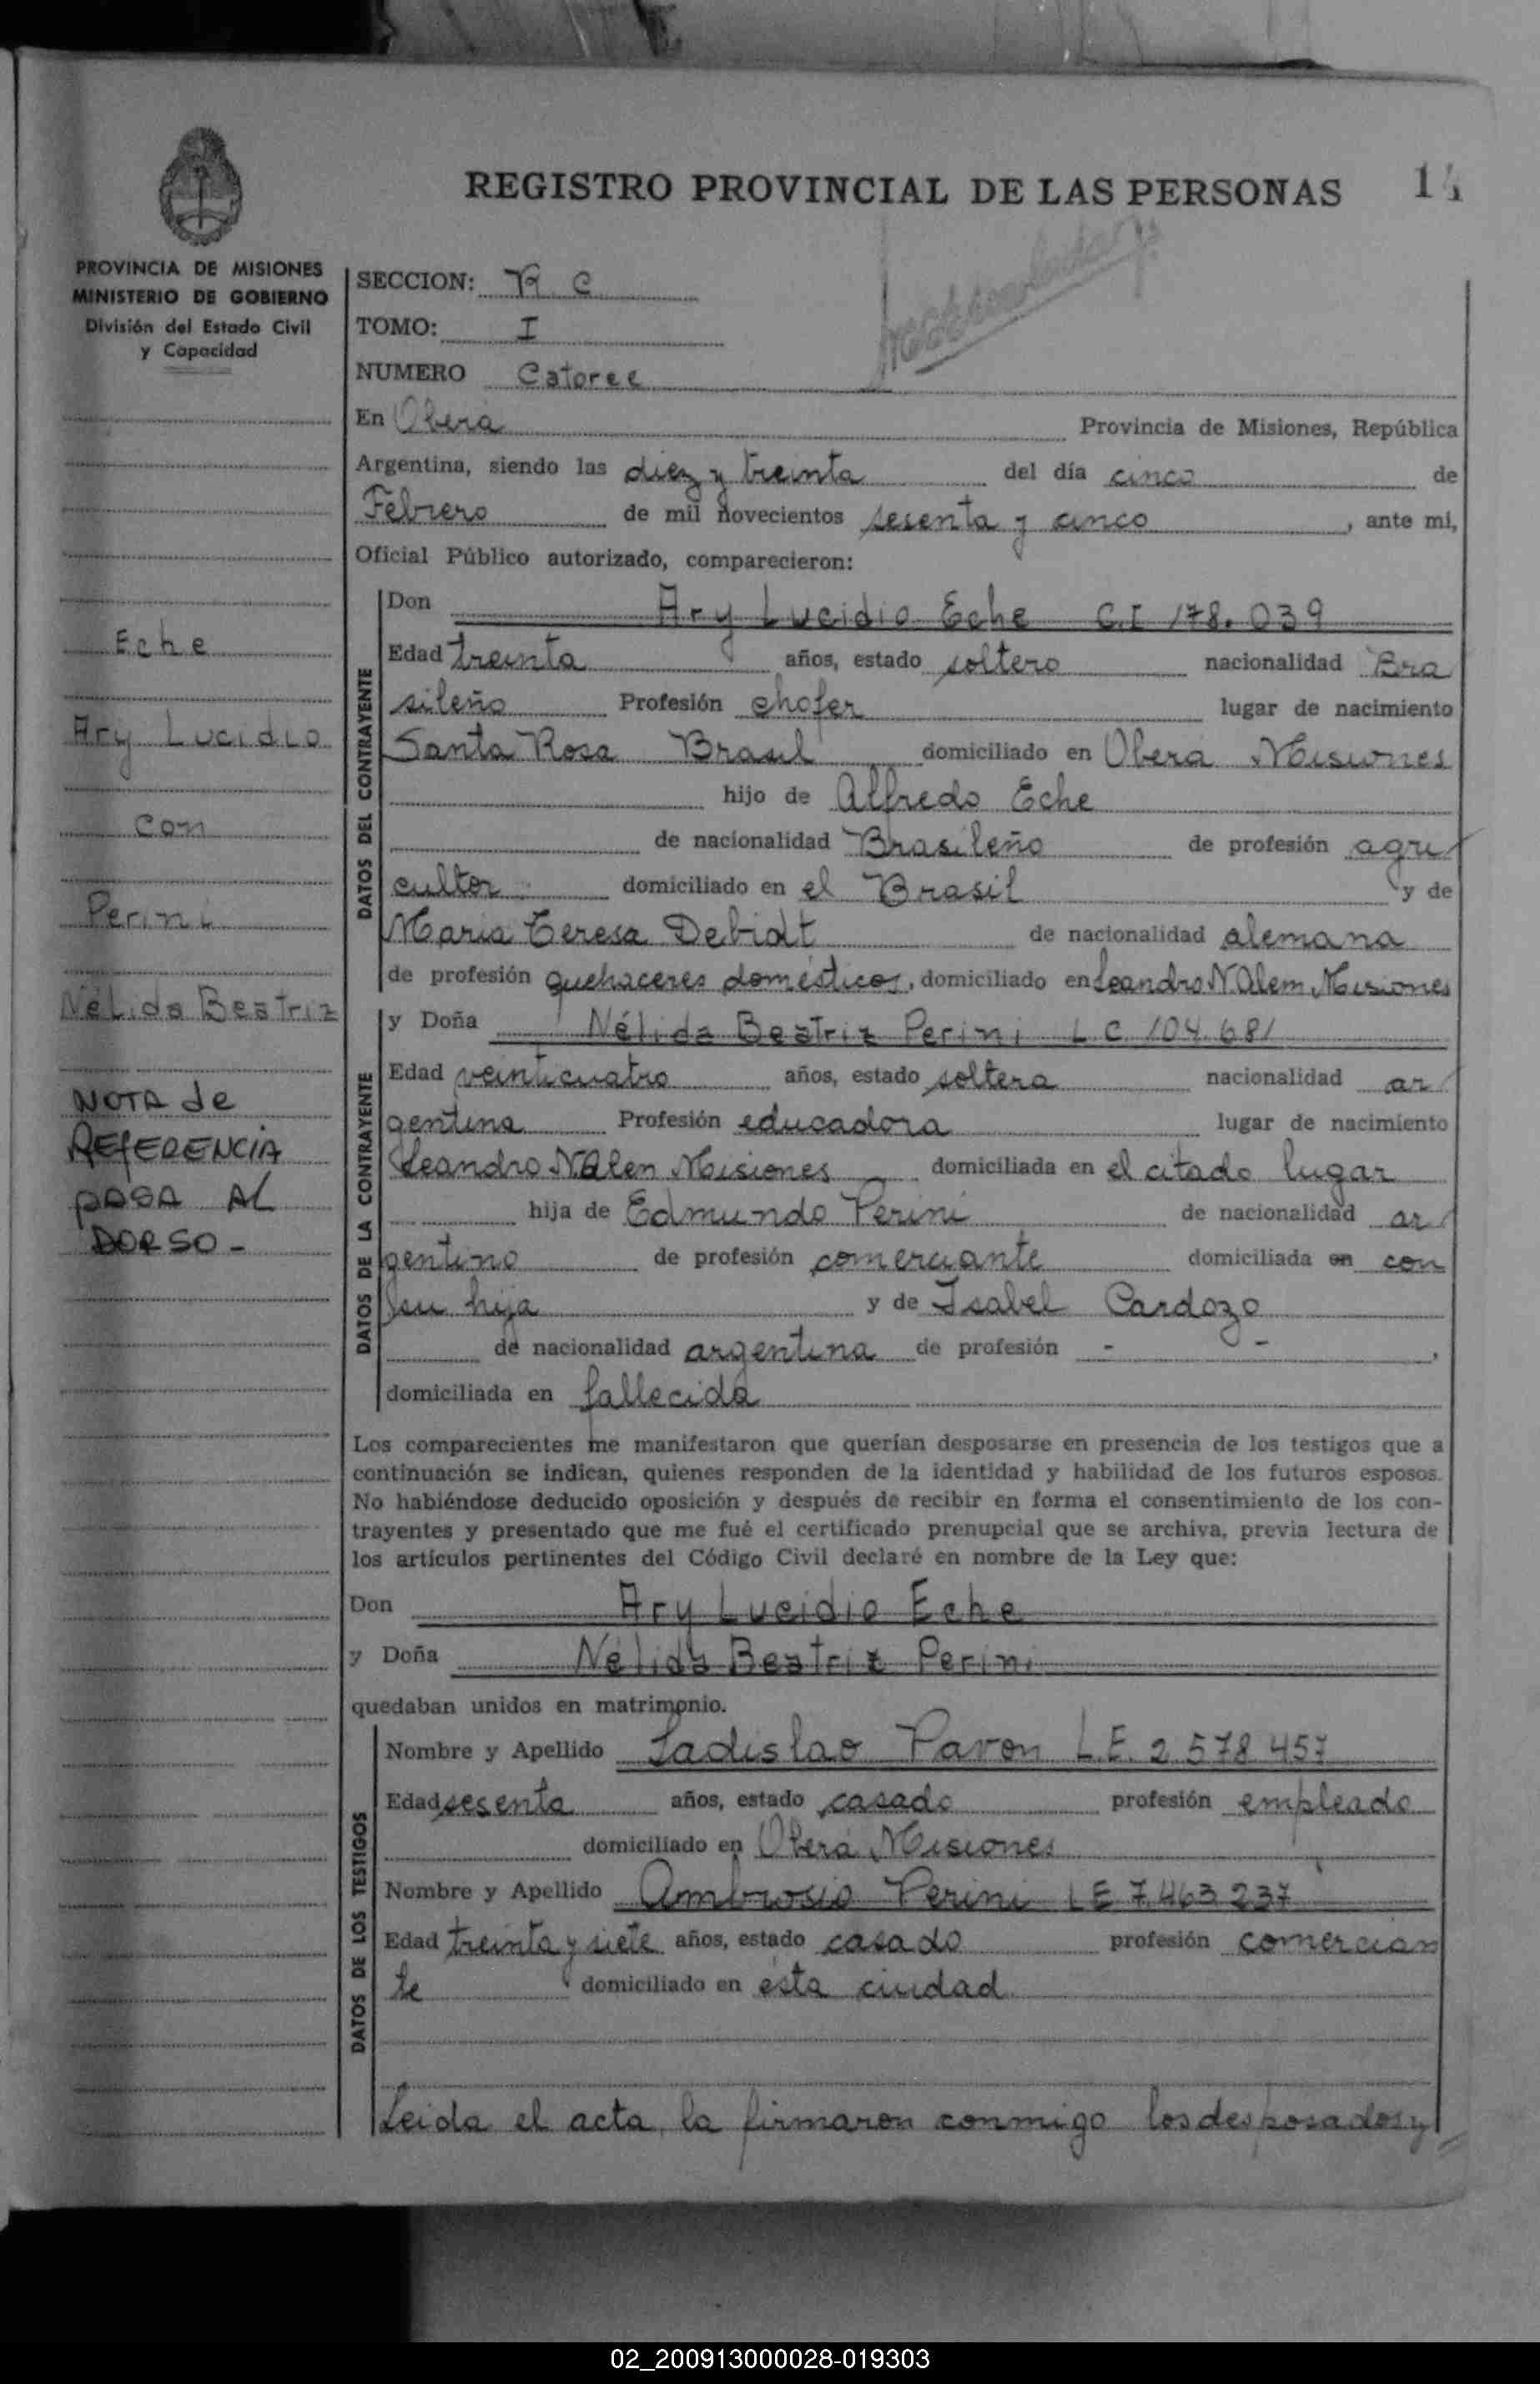 REGISTRO PROVINCIAL DE LAS PERSONAS
PROVINCIA DE MISIONES
MINISTERIO DE GOBIERNO
División del Estado Civil
y Capacidad
Eche
Ary Lucidio
con
Perini
Nélida Beatriz
NOTA de
REFERENCIA
PASA AL
DORSO -
SECCION: R C
TOMO: I
NUMERO Catorce
En Oberá Provincia de Misiones, República
Argentina, siendo las diez y treinta del día cinco de
Febrero de mil novecientos sesenta y cinco, ante mi,
Oficial Público autorizado, comparecieron:
DATOS DEL CONTRAYENTE
Don Ary Lucidio Eche C.I 178.039
Edad treinta años, estado soltero nacionalidad Bra
sileño Profesión chofer lugar de nacimiento
Santa Rosa Brasil domiciliado en Oberá Misiones
hijo de Alfredo Eche
de nacionalidad Brasileño de profesión agri
cultor domiciliado en el Brasil y de
Maria Teresa Debidt de nacionalidad alemana
de profesión quehaceres domésticos, domiciliado en Leandro N Alem, Misiones
DATOS DE LA CONTRAYENTE
y Doña Nélida Beatriz Perini L C 104.681
Edad veinticuatro años, estado soltera nacionalidad ar
gentina Profesión educadora lugar de nacimiento
Leandro N Alen Misiones domiciliada en el citado lugar
hija de Edmundo Perini de nacionalidad ar
gentino de profesión comerciante domiciliada en con
su hija y de Isabel Cardozo
de nacionalidad argentina de profesión - -,
domiciliada en fallecida
Los comparecientes me manifestaron que querían desposarse en presencia de los testigos que a
continuación se indican, quienes responden de la identidad y habilidad de los futuros esposos.
No habiéndose deducido oposición y después de recibir en forma el consentimiento de los con-
trayentes y presentado que me fué el certificado prenupcial que se archiva, previa lectura de
los artículos pertinentes del Código Civil declaré en nombre de la Ley que:
Don Ary Lucidio Eche
y Doña Nélida Beatriz Perini
quedaban unidos en matrimonio.
DATOS DE LOS TESTIGOS
Nombre y Apellido Ladislao Pavon L.E. 2 578 457
Edad sesenta años, estado casado profesión empleado
domiciliado en Oberá Misiones
Nombre y Apellido Ambrosio Perini L E 7.463 237
Edad treinta y siete años, estado casado profesión comercian
te domiciliado en esta ciudad
Leida el acta, la firmaron conmigo los desposados y
02_200913000028-019303